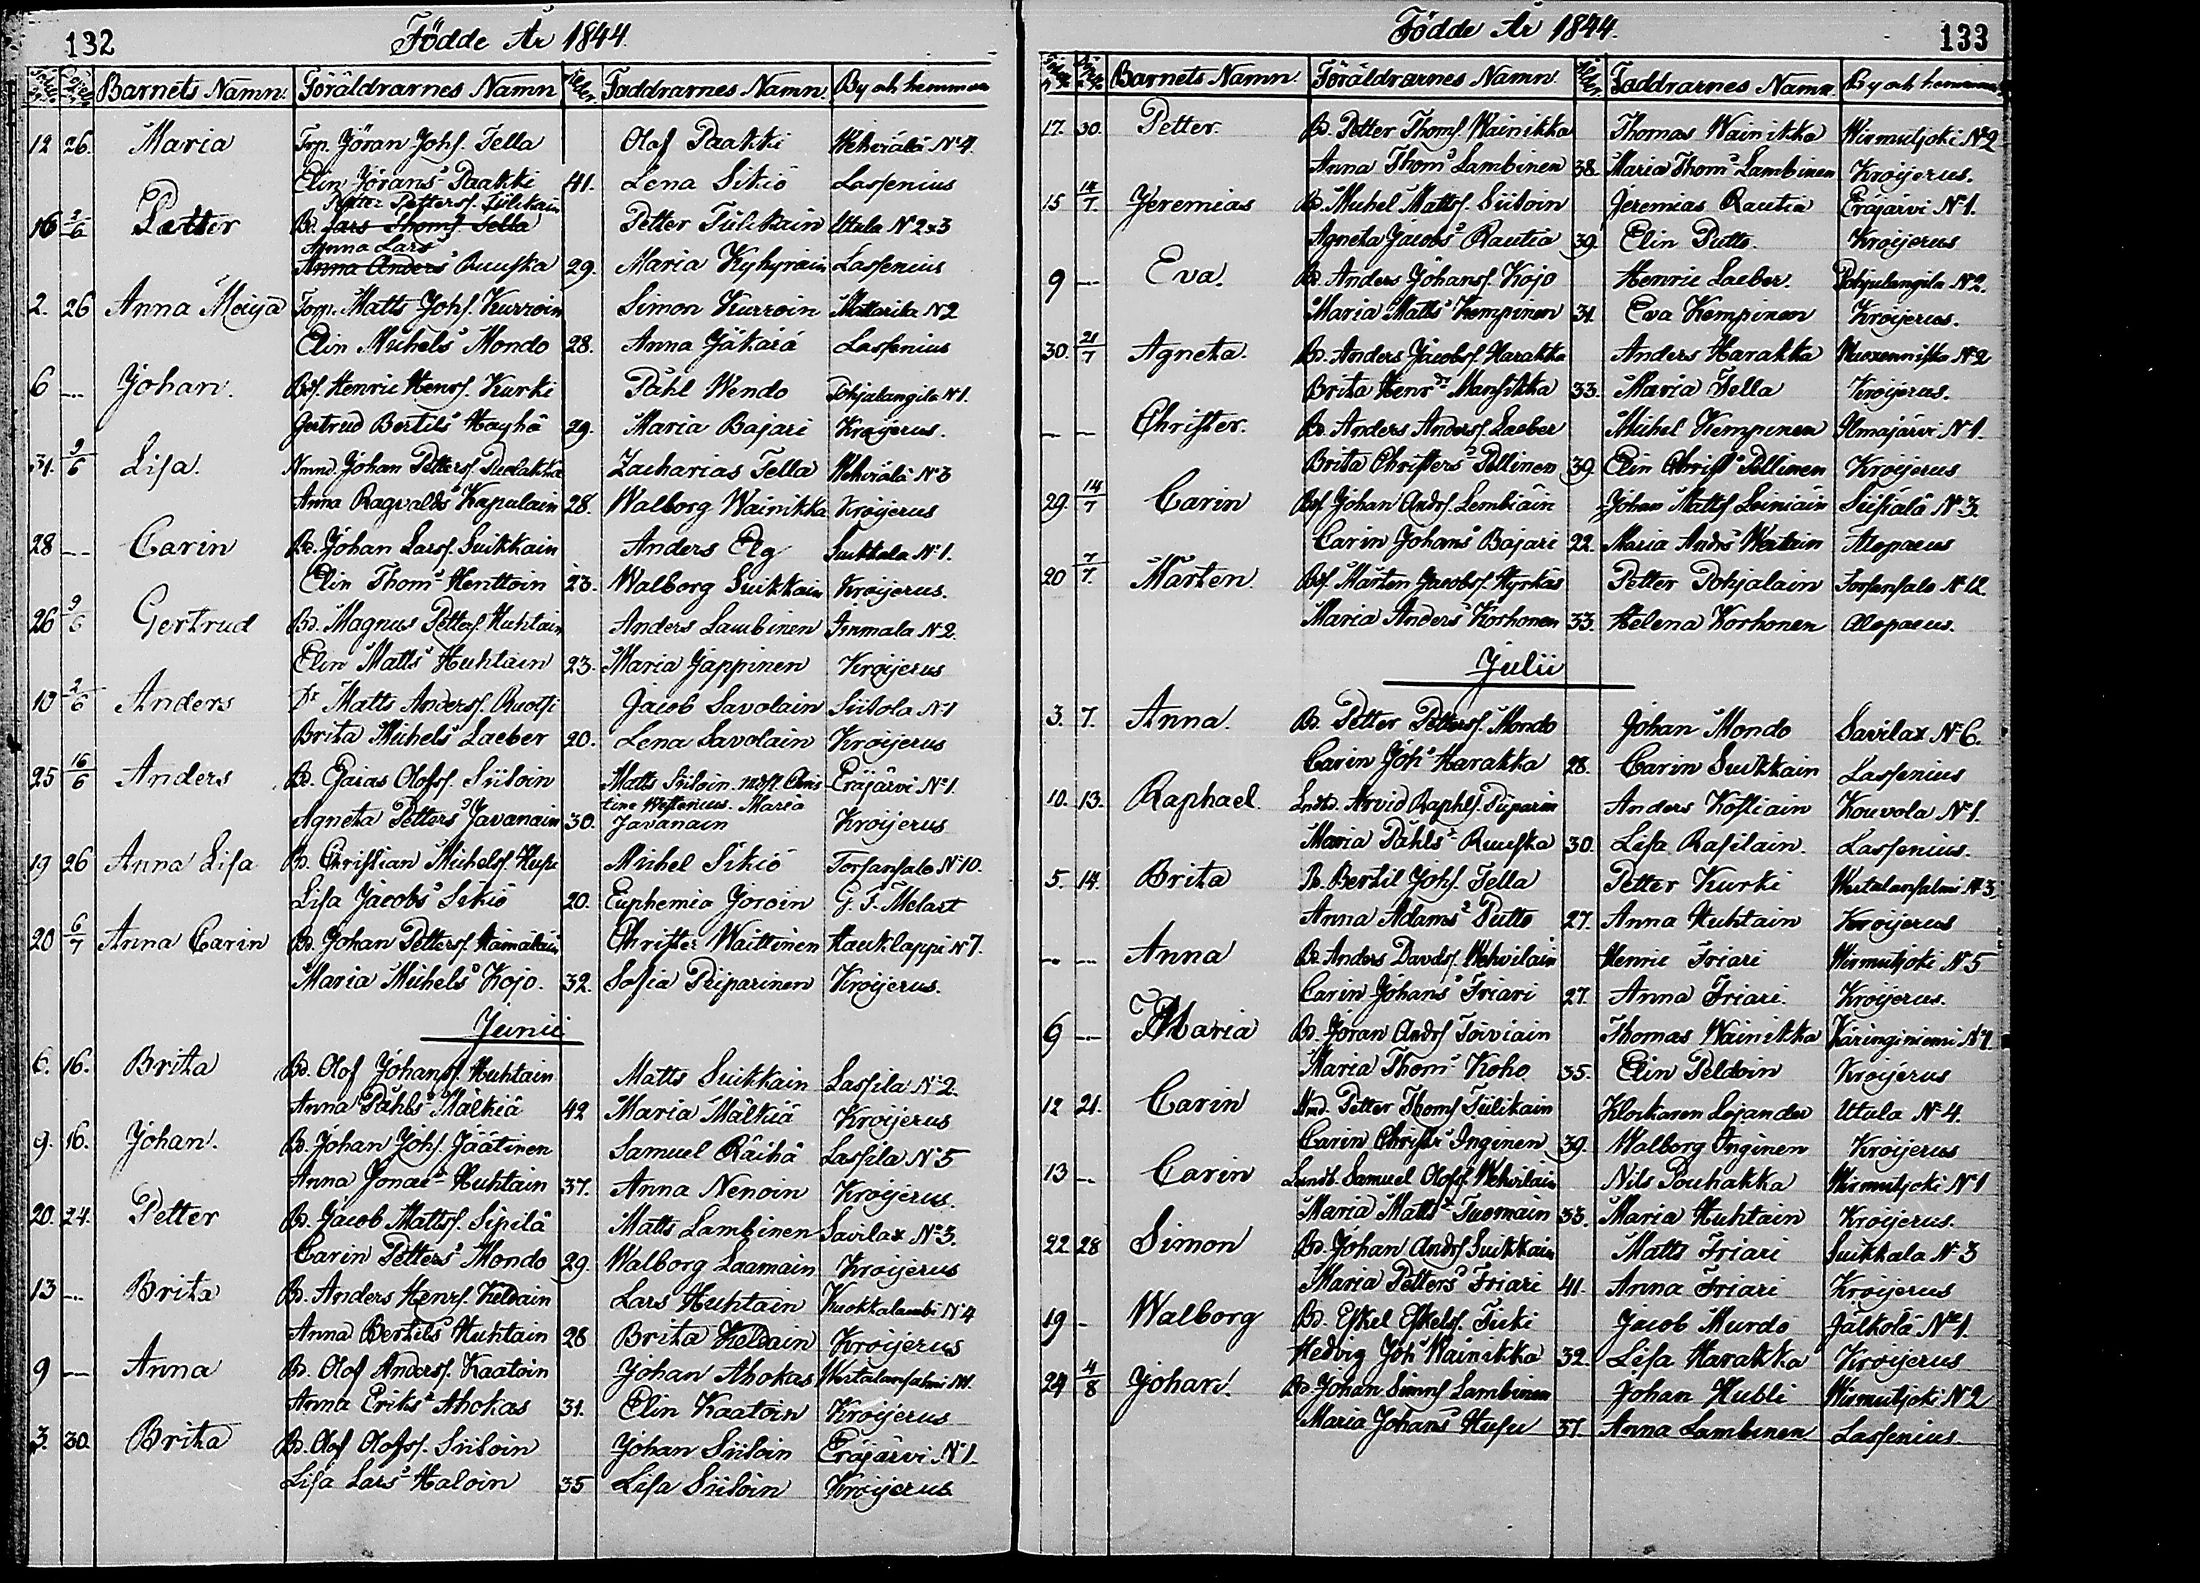 132
Födde År 1844.
Barnets Namn. Föräldrarnes Namn Ålder. Faddrarnes Namn. By och hemman
12 26. Maria Trp. Jöran Johs. Tella Olof Paakki Wehviälä N:4.
Elin Jörans Paakki 41. Lena Sikiö Lassenius
Petter Petterss. Tiilikain
16 2/6 Petter Bd. Lars Thoms. Tella Petter Tiilikain Utula N 2&3
Anna Lars
Anna Anders Ruuska 29. Maria Kyhyräin Lassenius
2. 26 Anna Maija Torp. Matts Johs. Kurroin Simon Kurroin Mattarila N2
Elin Michels Mondo 28. Anna Jäkärä Lassenius
6 -- Johan. Bds. Henric Henrs. Kurki Påhl Wendo Pohjalangila N1.
Gertrud Bertils Häyhä 29. Maria Bajari Kroijerus.
31. 9/6 Lisa. Nmnd. Johan Petters. Puolakka Zacharias Tella Wehviälä N:3
Anna Ragvalds Kapalain 28. Walborg Wainikka Kroijerus
28 -- Carin Bd. Johan Larss. Suikkain Anders Elg Suikkala N:1.
Elin Thoms Henttoin 23. Walborg Suikkain Kroijerus.
26 9/6 Gertrud Bd. Magnus Petters. Huhtain Anders Lambinen Immala N:2.
Elin Matts Huhtain 23. Maria Jäppinen Kroijerus
19 2/6 Anders Dr Matts Anderss. Ruotsi Jacob Savolain Siitola N:1
Brita Michels Laeber 20. Lena Savolain Kroijerus
25 16/6 Anders Bd. Esaias Olofss. Siitoin Matts Siitoin. Chris Eräjärvi N:1.
tine Westenius. Maria
Agneta Petters Javanain 30. Javanain Kroijerus
19 26 Anna Lisa Bd. Christian Michelss. Husu Michel Sikiö Torsansalo N:10.
Lisa Jacobs Sikiö 20. Euphemia Joroin G. F. Melart
20 6/7 Anna Carin Bd. Johan Petterss. Hämäläin Christer Waittinen Hauklappi N:7.
Maria Michels Kojo. 32. Sofia Piiparinen Kroijerus.
Junii
6. 16. Brita Bd. Olof Johanss. Huhtain Matts Suikkain Lassila N:2.
Anna Påhls Mälkiä 42 Maria Mälkiä Kroijerus
9. 16. Johan. Bd. Johan Johs. Jäätinen Samuel Räihä Lassila N:5
Anna Jonae Huhtain 37. Anna Nenoin Kroijerus.
20. 24. Petter Bd. Jacob Mattss. Sipilä Matts Lambinen Savilax N:3.
Carin Petters Mondo 29. Walborg Laamain Kroijerus
13 -- Brita Bd. Anders Henrs. Keldain Lars Huhtain Kuokkalambi N:4
Anna Bertils Huhtain 28 Brita Keldain Kroijerus
9 -- Anna Bd. Olof Anderss. Kaatoin Johan Ahokas Wertalansalmi N1.
Anna Eriks Ahokas 31. Elin Kaatoin Kroijerus
3. 30. Brita Bd. Olof Olofss. Siitoin Johan Siitoin Eräjärvi N:1.
Lisa Lars Haloin 35 Lisa Siitoin Kroijerus
Födde År 1844.
133
Barnets Namn. Föräldrarnes Namn Ålder. Faddrarnes Namn. By och hemman
17. 30. Petter. Bd. Petter Thoms. Wainikka Thomas Wainikka Wirmutjoki N:2
Anna Thoms Lambinen 38. Maria Thoms Lambinen Kroijerus.
15 14/7. Jeremias Bd. Michel Mattss. Siitoin Jeremias Rautia Eräjärvi N:1.
Agneta Jacobs Rautia 39. Elin Putto. Kroijerus
9 -- Eva. Bd. Anders Johanss. Kojo Henric Laeber. Pohjalangila N:2.
Maria Matts Kempinen 31. Eva Kempinen Kroijerus.
30. 21/7 Agneta. Bd. Anders Jacobss. Harakka Anders Harakka Wuoxenniska N:2
Brita Henr dr Mansikka 33. Maria Tella Kroijerus.
-- -- Christer. Bd. Anders Anderss. Laeber Michel Kempinen Ilmajärvi N:1.
Brita Christers Pellinen 39. Elin Christs Pellinen Kroijerus
29. 14/7 Carin Bds. Johan Andrs. Lembiäin Johan Mattss. Leiniäin Siitiälä N:3.
Carin Johans Bajari 22. Maria Andrs Watain Alopaeus
20 7/7. Mårten. Bds. Mårten Jacobss. Hyrkäs Petter Pohjalain Torsansalo N:12
Maria Anders Korhonen 33. Helena Korhonen Alopaeus.
Julii
3. 7. Anna. Bd. Petter Petterss. Mondo Johan Mondo Savilax N:6.
Carin Joh Harakka 28. Carin Suikkain Lassenius
10. 13. Raphael. Lndbd. Arvid Raphls. Piiparin Anders Kostiain Kouvola N:1.
Maria Påhls Ruuska 30. Lisa Rasilain. Lassenius.
5. 14. Brita Bd. Bertil Johs. Tella Petter Kurki Wertalansalmi N:3
Anna Adams Putto 27. Anna Huhtain Kroijerus
-- -- Anna Bd. Anders Davds. Wehvilain Henric Friari Wirmutjoki N:5
Carin Johans Friari 27. Anna Friari. Kroijerus.
6 -- Maria Bd. Jöran Andrs Toiviain Thomas Wainikka Käringiniemi N:1.
Maria Thoms Koho 35. Elin Peldoin Kroijerus
12 21. Carin Nmd. Petter Thoms Tiilikain Klockaren Lojander Utula N:4.
Carin Christrs Inginen 39. Walborg Inginen Kroijerus
13 -- Carin Lundb. Samuel Olofss. Wehvilain Nils Pouhakka Wirmutjoki N:1
Maria Matts Tuomain 33. Maria Huhtain Kroijerus.
22 28 Simon Bd. Johan Andrs Suikkain Matts Friari Suikkala N:3
Maria Petters Friari 41. Anna Friari Kroijerus
19 - Walborg Bd. Eskel Eskels. Tiiki Jacob Murdo Jälkölä N:1.
Hedvig Joh Wainikka 32. Lisa Harakka Kroijerus
24 4/8 Johan. Bd. Johan Simns Lambinen Johan Hubli Wirmutjoki N2
Maria Johans Husu 37. Anna Lambinen Lassenius